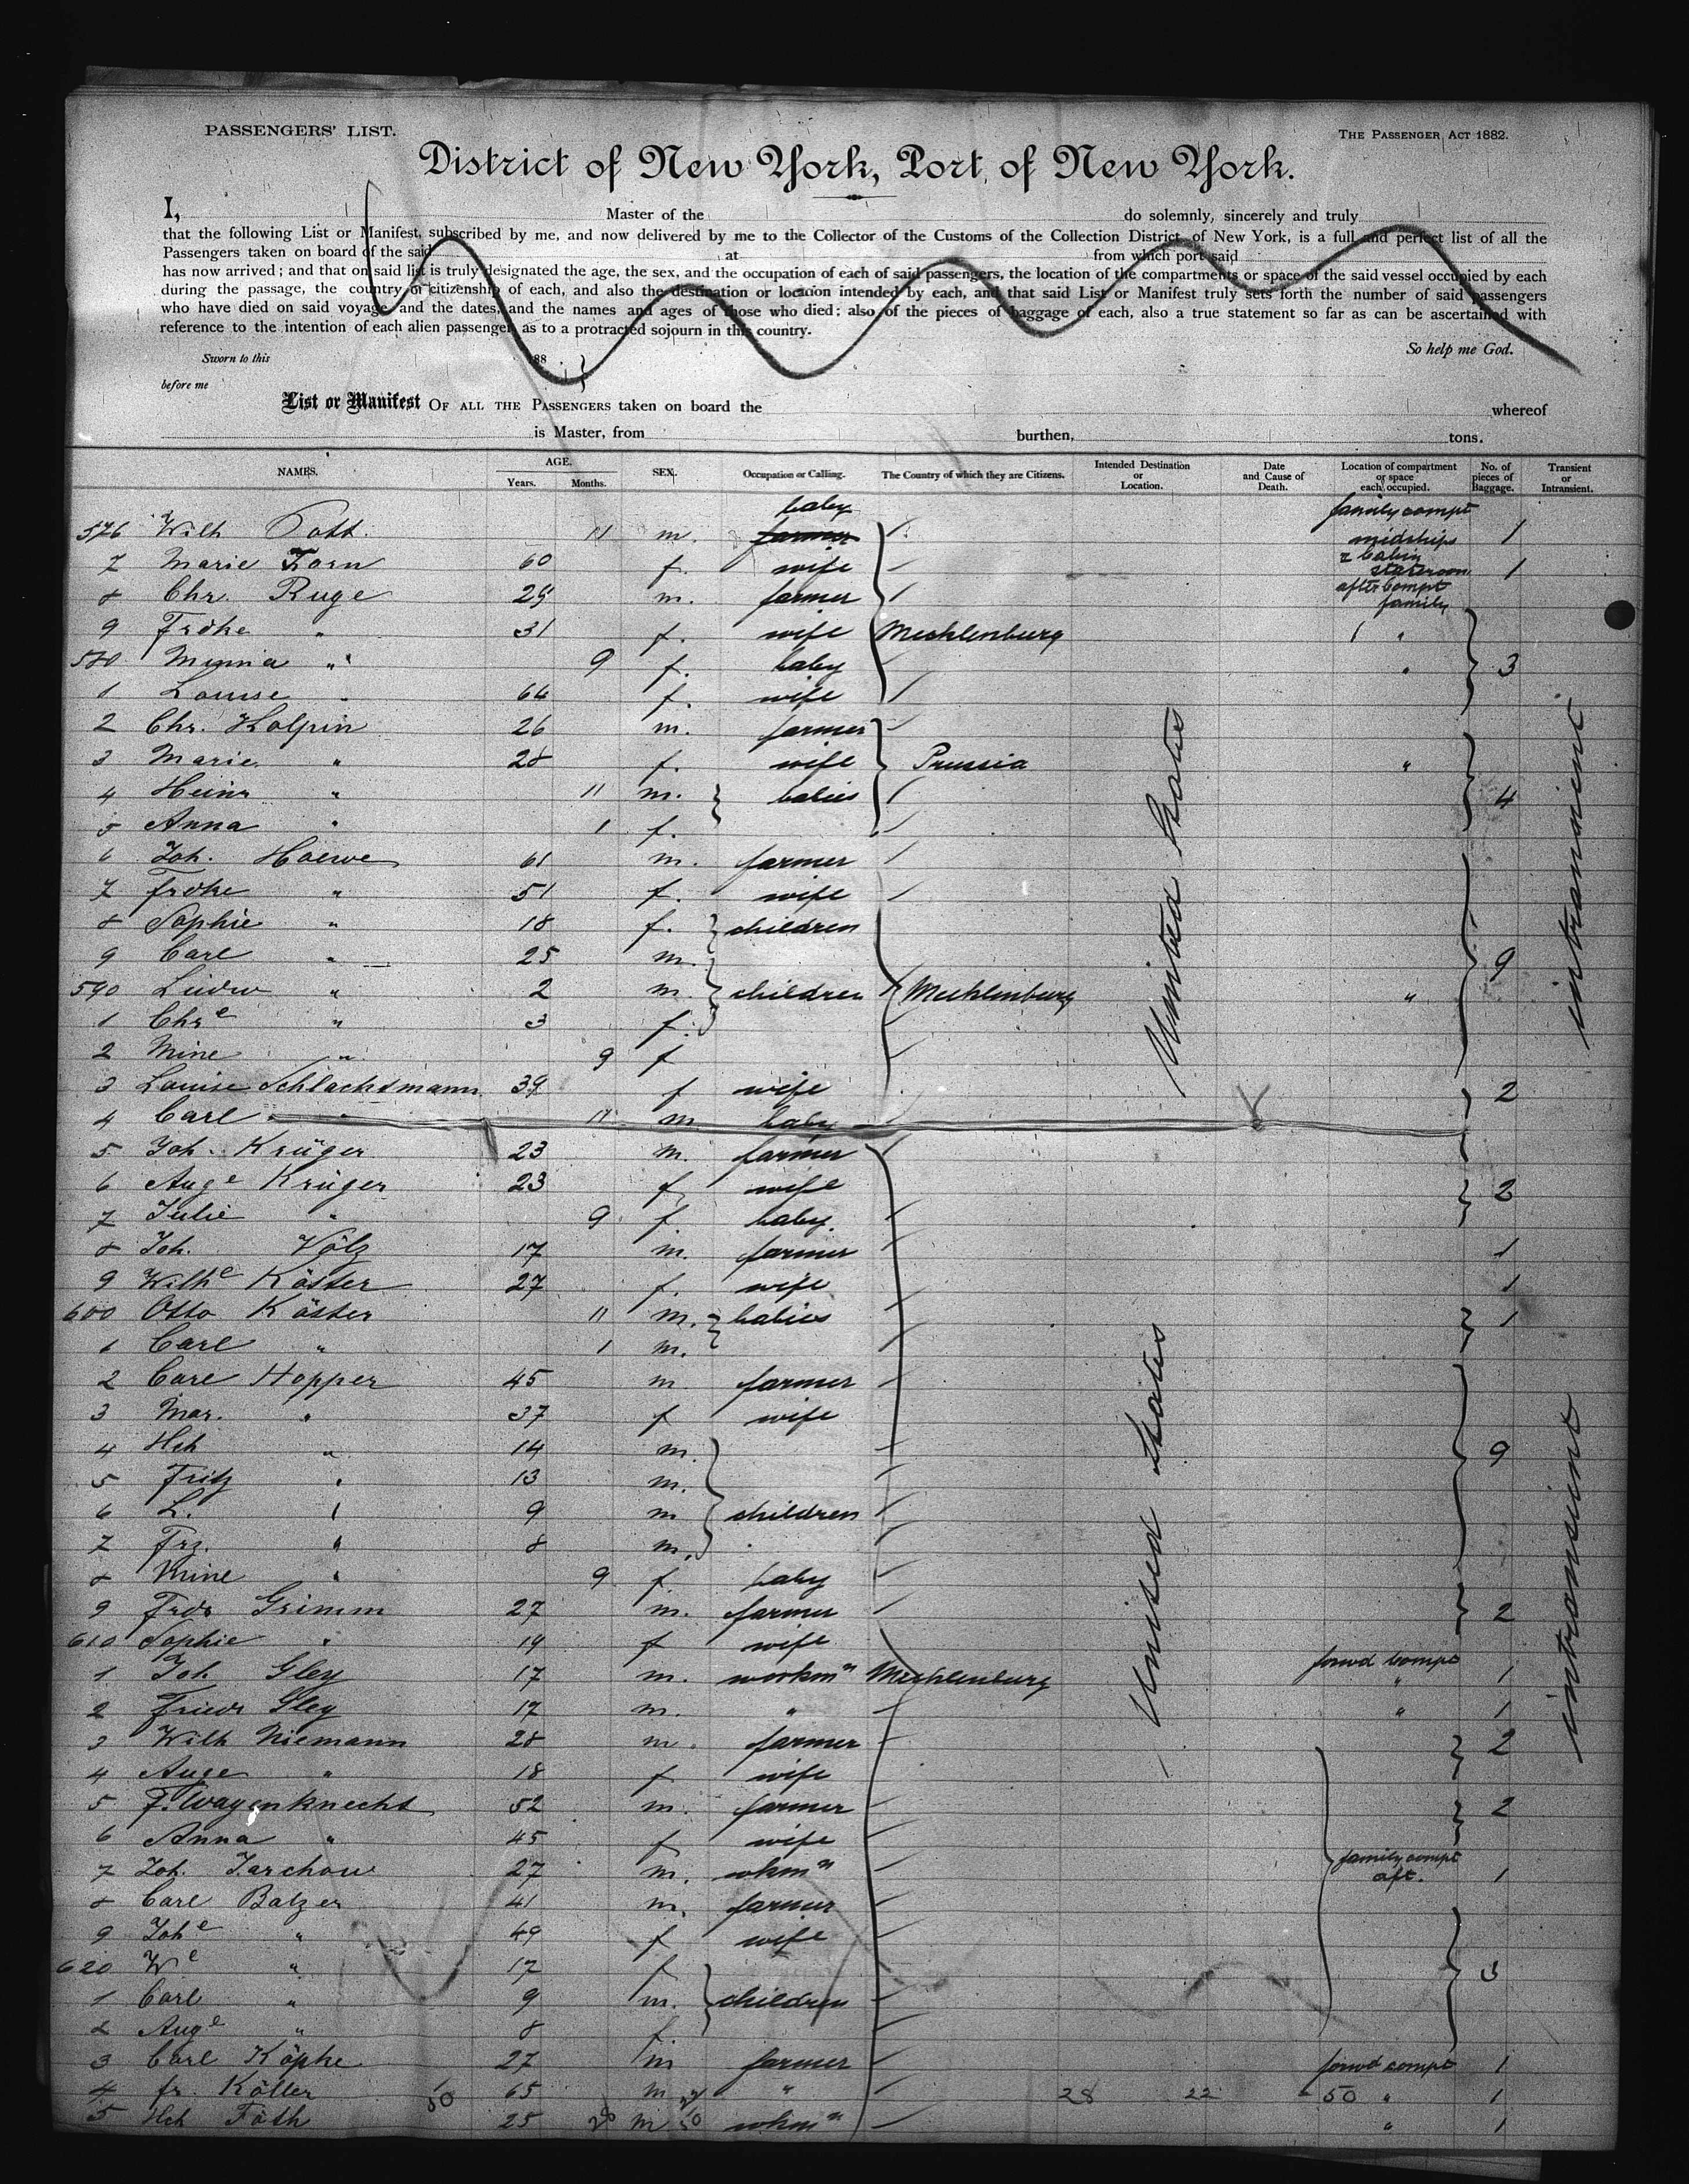 PASSENGERS' LIST.
THE PASSENGER ACT 1882.
District of New York, Port of New York.
I, Master of the do solemnly, sincerely and truly
that the following List or Manifest, subscribed by me, and now delivered by me to the Collector of the Customs of the Collection District of New York, is a full and perfect list of all the
Passengers taken on board of the said at from which port said
has now arrived; and that on said list is truly designated the age, the sex, and the occupation of each of said passengers, the location of the compartments or space of the said vessel occupied by each
during the passage, the country of citizenship of each, and also the destination or location intended by each, and that said List or Manifest truly sets forth the number of said passengers
who have died on said voyage and the dates, and the names and ages of those who died: also of the pieces of baggage of each, also a true statement so far as can be ascertained with
reference to the intention of each alien passenger, as to a protracted sojourn in this country.
So help me God.
Sworn to this 188
before me
List or Manifest OF ALL THE PASSENGERS taken on board the whereof
is Master, from burthen, tons.
NAMES. AGE. Years. Months. SEX. Occupation or Calling. The Country of which they are Citizens. Intended Destination or Location. Date and Cause of Death. Location of compartment or space each occupied. No. of pieces of Baggage. Transient or Intransient.
baby family compt
576 Wilh 11 m. farmer midships 1
7 Marie 60 f. wife 2 Cabin stateroom 1
8 Chr. Ruge 29 m. farmer after compt family
9 Frdke " 31 f. wife Mecklenburg "
580 Minna " 9 f. baby " 3
1 Louise " 64 f. wife
2 Chr. Kolpin 26 m. farmer
3 Marie " 28 f. wife Prussia "
4 Heinr " 11 m. babies 4
5 Anna " 1 f.
6 Joh. Hoewe 61 m. farmer
7 frdke " 51 f. wife
8 Sophie " 18 f. children
9 Carl " 25 m. 9
590 Ludw " 2 m. children Mecklenburg "
1 Chre " 3 f.
2 Mine " 9 f
3 Louise Schlachtmann 39 f wife 2
4 Carl " 11 m baby
5 Joh. Krüger 23 m. farmer
6 Auge Krüger 23 f wife 2
7 Julie " 9 f. baby
8 Joh. Völz 17 m. farmer 1
9 Wilhe Köster 27 f. wife 1
600 Otto Köster 11 m. babies 1
1 Carl " 1 m.
2 Carl Hopper 45 m farmer
3 Mar. " 37 f wife
4 Hch " 14 m. 9
5 Fritz " 13 m.
6 L. " 9 m children
7 Frz. " 8 m.
8 Mine " 9 f. baby
9 Frdr Grimm 27 m. farmer 2
610 Sophie " 19 f wife
1 Joh Gley 17 m. workmn Mecklenburg forwd compt 1
2 Friedr Gley 17 m. " " 1
3 Wilh Niemann 28 m. farmer 2
4 Auge " 18 f wife
5 F. Wagenknecht 52 m. farmer 2
6 Anna " 45 f wife
7 Joh. Jarchow 27 m. wkmn family compt aft. 1
8 Carl Balzer 41 m. farmer
9 Johe " 49 f wife
620 We " 17 f 3
1 Carl " 9 m. children
2 Auge " 8 f.
3 Carl Köpke 27 m farmer forwd compt 1
4 fr. Köller 50 65 m " 28 22 50 " 1
5 Hch Fäth 25 28 m wkmn " 1
United States
United States
intransient
intransient